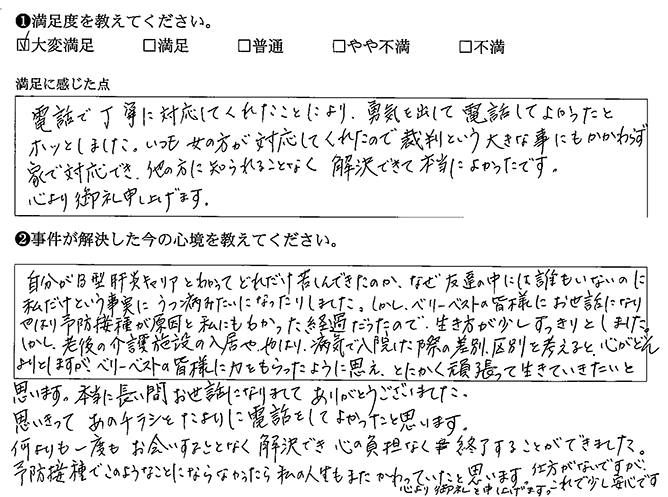 ❶満足度を教えてください。
☑大変満足 □満足 □普通 □やや不満 □不満
満足に感じた点
電話で丁寧に対応してくれたことにより、勇気を出して電話してよかったと
ホッとしました。いつも女の方が対応してくれたので裁判という大きな事にもかかわらず
家で対応でき、他の方に知られることなく解決できて本当によかったです。
心より御礼申し上げます。
❷事件が解決した今の心境を教えてください。
自分がB型肝炎キャリアとわかってどれだけ苦しんできたのか、なぜ友達の中には誰もいないのに
私だけという事実にうつ病みたいになったりしました。しかし、ベリーベストの皆様にお世話になり
やはり予防接種が原因と私にもわかった経過だったので、生き方が少しすっきりとしました。
しかし、老後の介護施設の入居や、やはり、病気で入院した際の差別、区別を考えると、心がどんより
としますがベリーベストの皆様に力をもらったように思え、とにかく頑張って生きていきたいと
思います。本当に長い間お世話になりまして ありがとうございました。
思いきって あのチラシをたよりに電話をしてよかったと思います。
何よりも一度も お会いすることなく解決でき 心の負担なく終了することができました。
予防接種でこのようなことにならなかったら私の人生もまた かわっていたと思います。仕方がないですが、
心より御礼を申し上げます。これで少し安心です